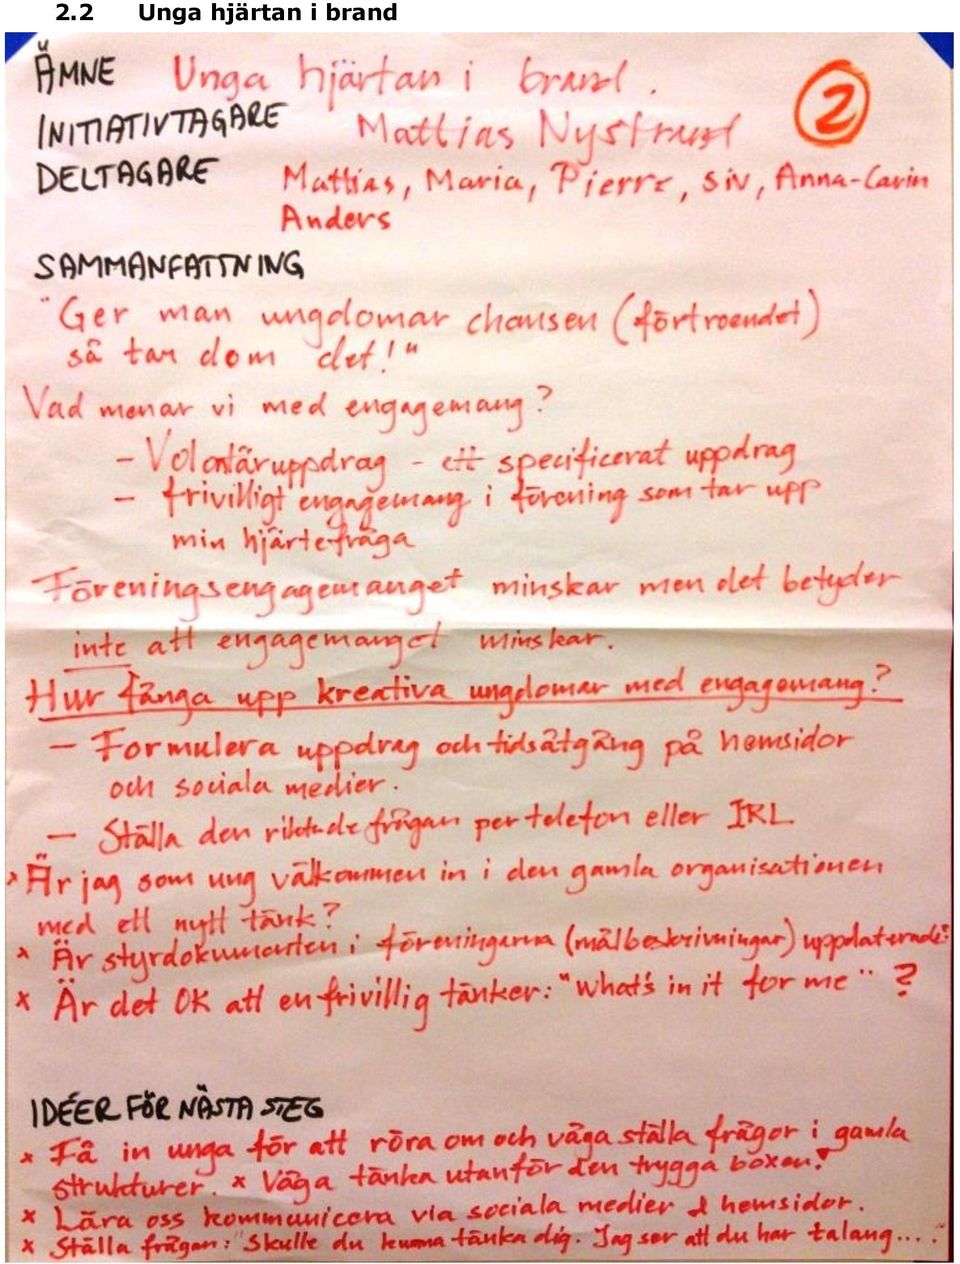 2.2 Unga hjärtan i brand
ÄMNE Unga hjärtan i brand.
2
INITIATIVTAGARE Mattias Nystrand
DELTAGARE Mattias, Maria, Pierre, Siv, Anna-Carin
Anders
SAMMANFATTNING
"Ger man ungdomar chansen (förtroendet)
så tar dom det!"
Vad menar vi med engagemang?
- Volontäruppdrag - ett specificerat uppdrag
- frivilligt engagemang i förening som tar upp
min hjärtefråga
Föreningsengagemanget minskar men det betyder
inte att engagemanget minskar.
Hur fånga upp kreativa ungdomar med engagemang?
- Formulera uppdrag och tidsåtgång på hemsidor
och sociala medier.
- Ställa den riktade frågan per telefon eller IRL
* Är jag som ung välkommen in i den gamla organisationen
med ett nytt tänk?
* Är styrdokumenten i föreningarna (målbeskrivningar) uppdaterade?
* Är det OK att en frivillig tänker: "what's in it for me" ?
IDÉER FÖR NÄSTA STEG
* Få in unga för att röra om och våga ställa frågor i gamla
strukturer. * Våga tänka utanför den trygga boxen!
* Lära oss kommunicera via sociala medier & hemsidor.
* Ställa frågan: "Skulle du kunna tänka dig. Jag ser att du har talang...."